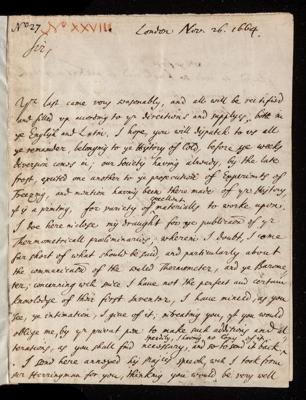 No 27. No XXVIII
London Nov. 26. 1664.
Sir,
Yr last came very seasonably, and all will be rectified
and filled up according to yr directions and supplys, both in
ye English and Latin. I hope, you will dispatch to us all
ye remainder, belonging to ye History of Cold, before ye weeks
diversion comes in; our Society having already, by the late
frost, excited one another to ye prosecution of Experiments of
Freezing, and mention having been there made of yr History
yt is a printing, for variety of excellent materials to worke upon.
I doe here inclose my draught for ye publication of yr
Thermometricall præliminaries; wherein I doubt, I come
far short of what should be said, and particularly about
the communication of the sealed Thermometer, and ye Barome-
ter; concerning wch since I have not the perfect and certain
knowledge of their first Inventor, I have mineed, as you
see, ye intimation, I give of it, intreating you, if you would
oblige me, by yr privat pen to make such additions and al-
terations, as you shall find necessary, and to send it back
speedily, I having no copy of it.
I send here annexed his Majties speech, wch I took from
Mr Herringman for you, thinking you would be very well